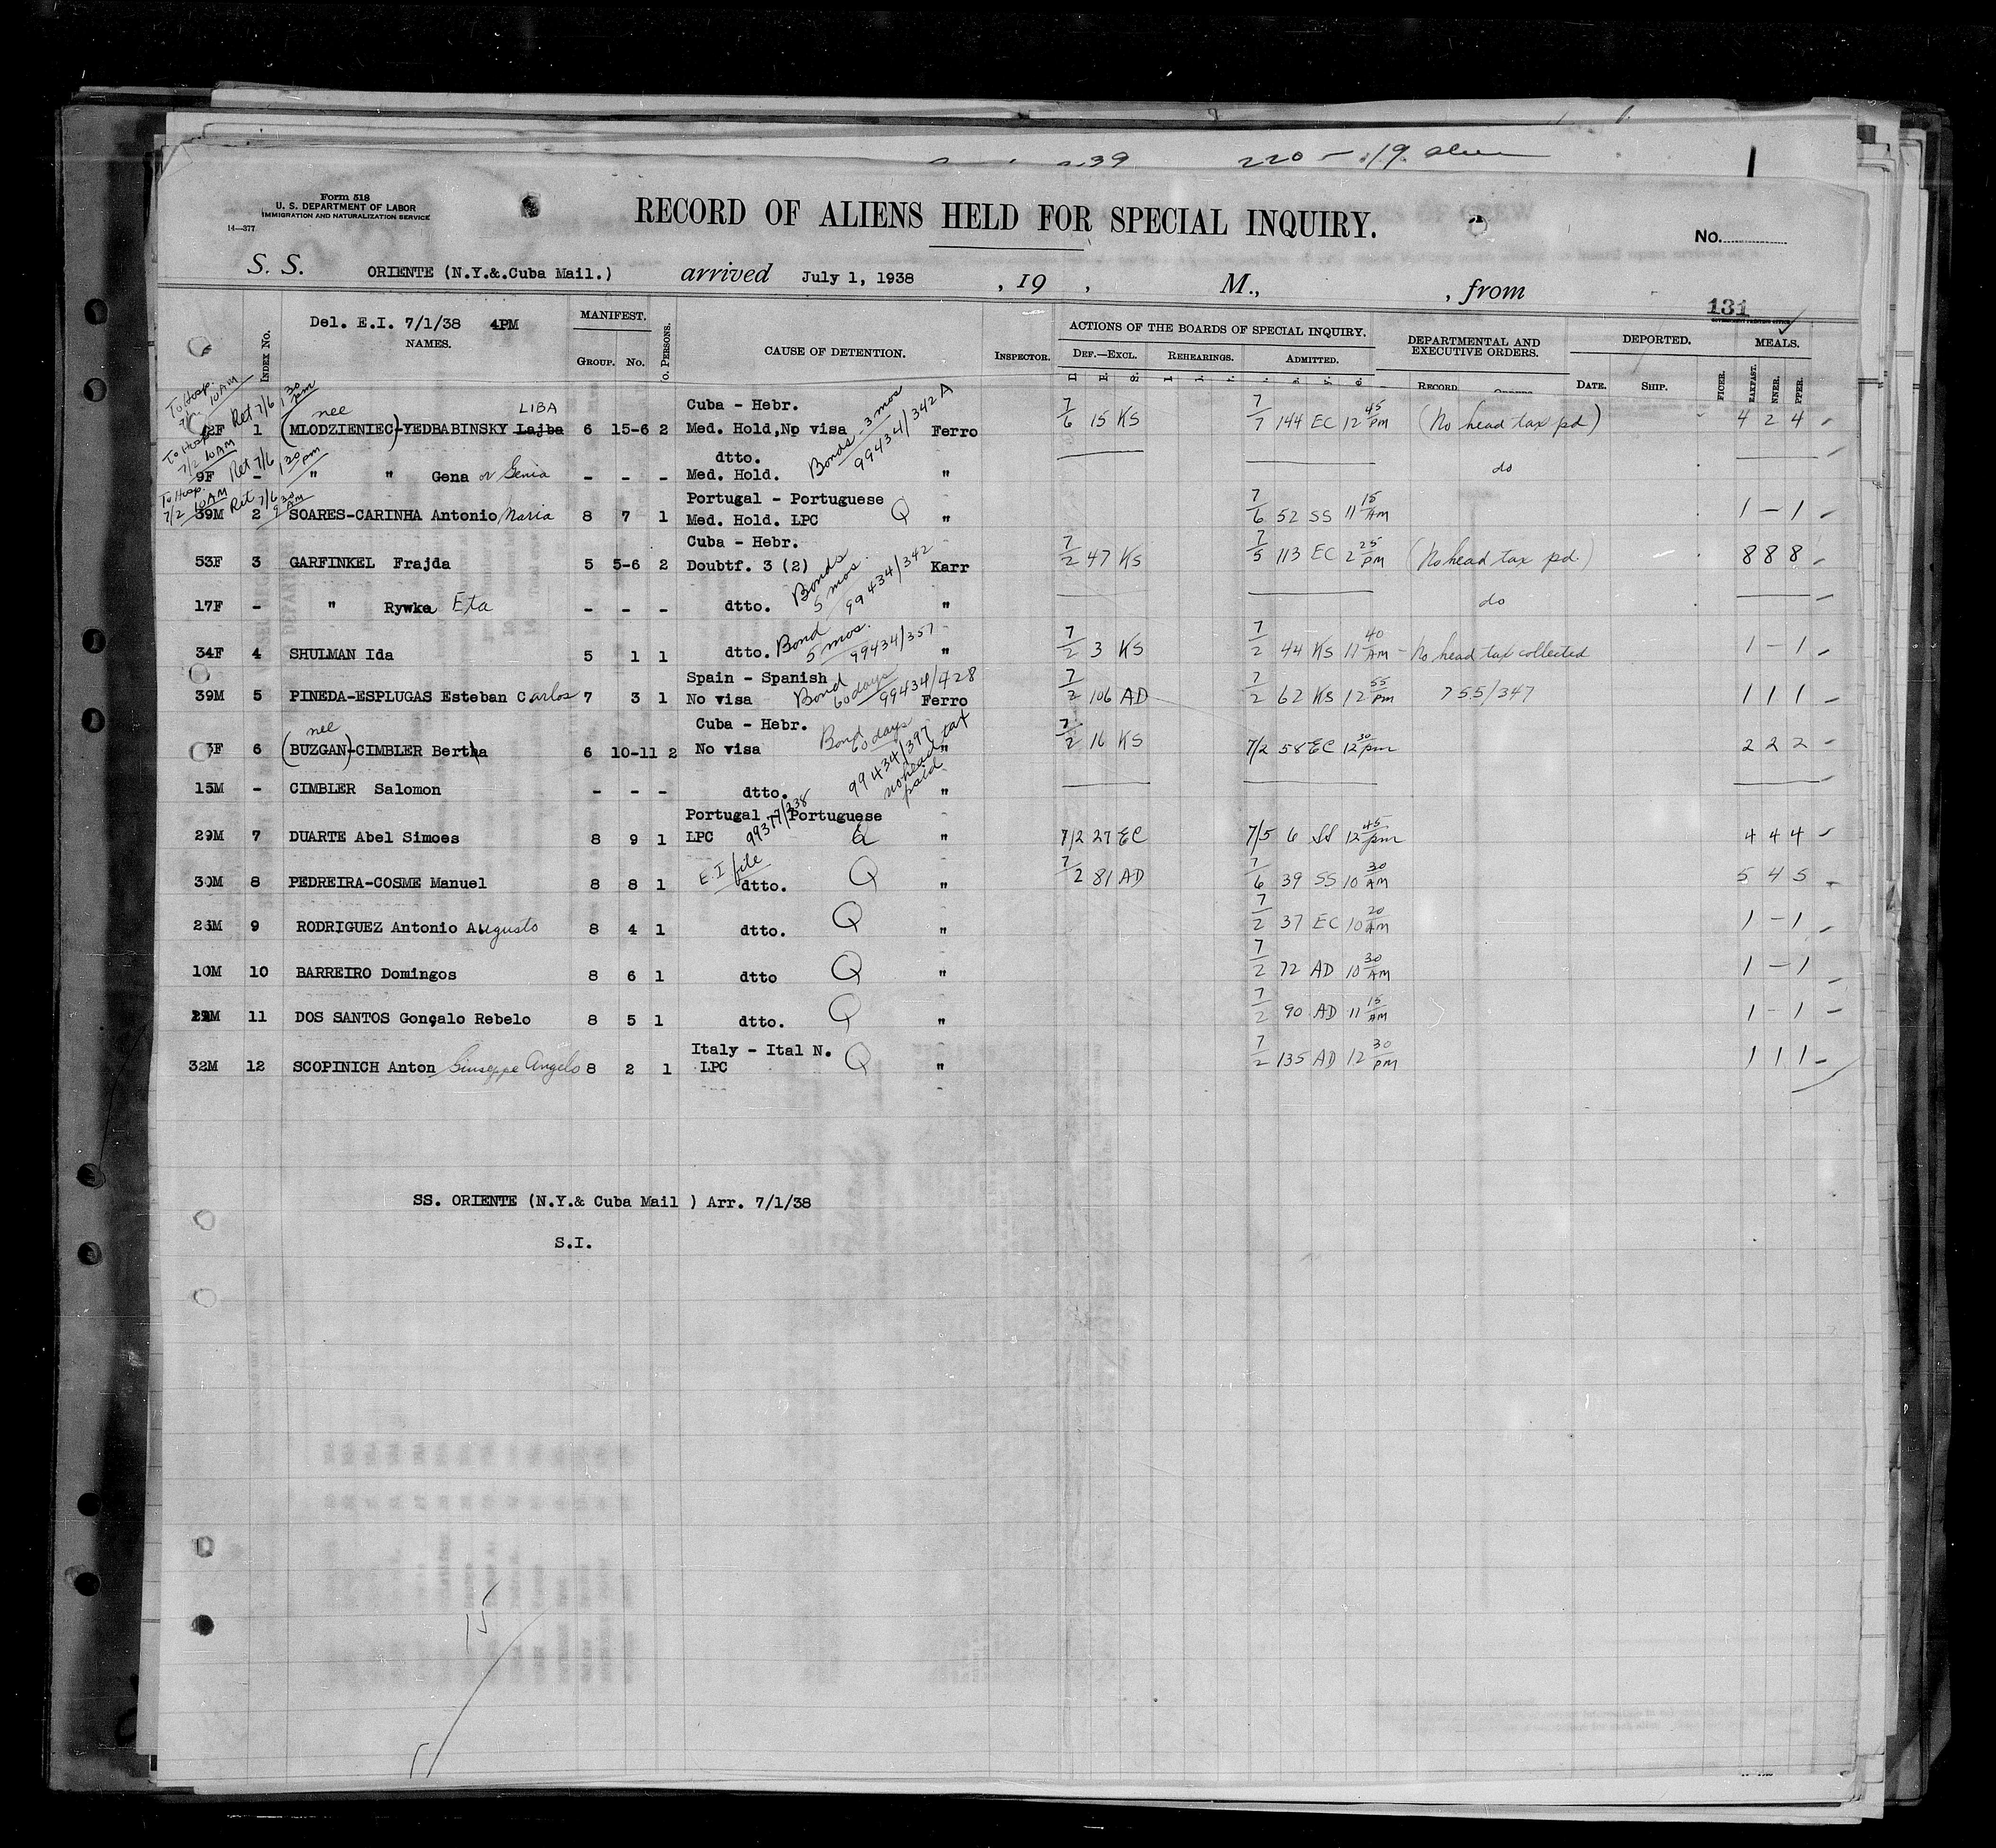 39 220 - 19.
Form 518
U. S. DEPARTMENT OF LABOR
IMMIGRATION AND NATURALIZATION SERVICE
14—377
RECORD OF ALIENS HELD FOR SPECIAL INQUIRY.
No.
S. S. ORIENTE (N.Y.&.Cuba Mail.) arrived July 1, 1938 , 19 , M., , from
131
Del. E.I. 7/1/38 4PM
NAMES.
INDEX NO.
MANIFEST.
GROUP. NO.
O. PERSONS.
CAUSE OF DETENTION.
INSPECTOR.
ACTIONS OF THE BOARDS OF SPECIAL INQUIRY.
DEF.—EXCL. REHEARINGS. ADMITTED.
DEPARTMENTAL AND
EXECUTIVE ORDERS.
RECORD
DEPORTED.
DATE. SHIP.
MEALS.
To Hosp. 10 AM Ret 7/6 1 30 pm
nee LIBA Cuba - Hebr.
42F 1 (MLODZIENIEC)-YEDBABINSKY Lajba 6 15-6 2 Med. Hold, No visa Bonds 3 mos 99434/342A Ferro 7/6 15 KS 7/7 144 EC 12 45 pm (No head tax pd) 4 2 4
To Hosp. 7/2 10 AM Ret 7/6 1 30 pm
dtto.
9F - " " Gena or Genia - - - Med. Hold. " do
To Hosp. 7/2 10 AM Ret 7/6 9 30 AM
Portugal - Portuguese
39M 2 SOARES-CARINHA Antonio Maria 8 7 1 Med. Hold. LPC Q " 7/6 52 SS 11 15 AM 1 - 1
Cuba - Hebr.
53F 3 GARFINKEL Frajda 5 5-6 2 Doubtf. 3 (2) Bonds 5 mos. 99434/342 Karr 7/2 47 KS 7/5 113 EC 2 25 pm (No head tax pd.) 8 8 8
17F - " Rywka Eta - - - dtto. " do
34F 4 SHULMAN Ida 5 1 1 dtto. Bond 5 mos. 99434/357 " 7/2 3 KS 7/2 44 KS 11 40 AM - No head tax collected 1 - 1
Spain - Spanish
39M 5 PINEDA-ESPLUGAS Esteban Carlos 7 3 1 No visa Bond 60 days 99434/428 Ferro 7/2 106 AD 7/2 62 KS 12 55 pm 755/347 1 1 1
nee Cuba - Hebr.
3F 6 (BUZGAN)-CIMBLER Bertha 6 10-11 2 No visa Bond 60 days 99434/397 no head tax paid " 7/2 16 KS 7/2 58 EC 12 30 pm 2 2 2
15M - CIMBLER Salomon - - - dtto. "
Portugal Portuguese
29M 7 DUARTE Abel Simoes 8 9 1 LPC 99377/238 Q " 7/2 27 EC 7/5 6 SS 12 45 pm 4 4 4
30M 8 PEDREIRA-COSME Manuel 8 8 1 E.I file dtto. Q " 7/2 81 AD 7/6 39 SS 10 30 AM 5 4 5
26M 9 RODRIGUEZ Antonio Augusto 8 4 1 dtto. Q " 7/2 37 EC 10 20 AM 1 - 1
10M 10 BARREIRO Domingos 8 6 1 dtto Q " 7/2 72 AD 10 30 AM 1 - 1
11 DOS SANTOS Gonçalo Rebelo 8 5 1 dtto. Q " 7/2 90 AD 11 15 AM 1 - 1
Italy - Ital N.
32M 12 SCOPINICH Anton Giuseppe Angelo 8 2 1 LPC Q " 7/2 135 AD 12 30 pm 1 1 1
SS. ORIENTE (N.Y.& Cuba Mail ) Arr. 7/1/38
S.I.
15